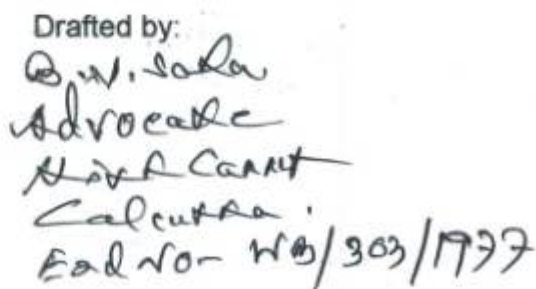 Drafted by:
Advocate
High Court
Calcutta.
End No- WB/303/1977